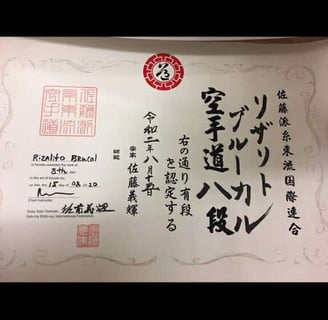 佐藤派糸東流国際連合
リザリト
ブルーカル
空手道八段
右の通り有段
を認定する
令和二年八月十五日
佐藤義輝
師範
佐藤派
糸東流
空手道
Rizalito Brucal
is hereby awarded the rank of
8th dan
in the art of Karate-do,
on this, the 15 day of 08 20
Chief Instructor
Sato-ha Shito-ryu International Federation